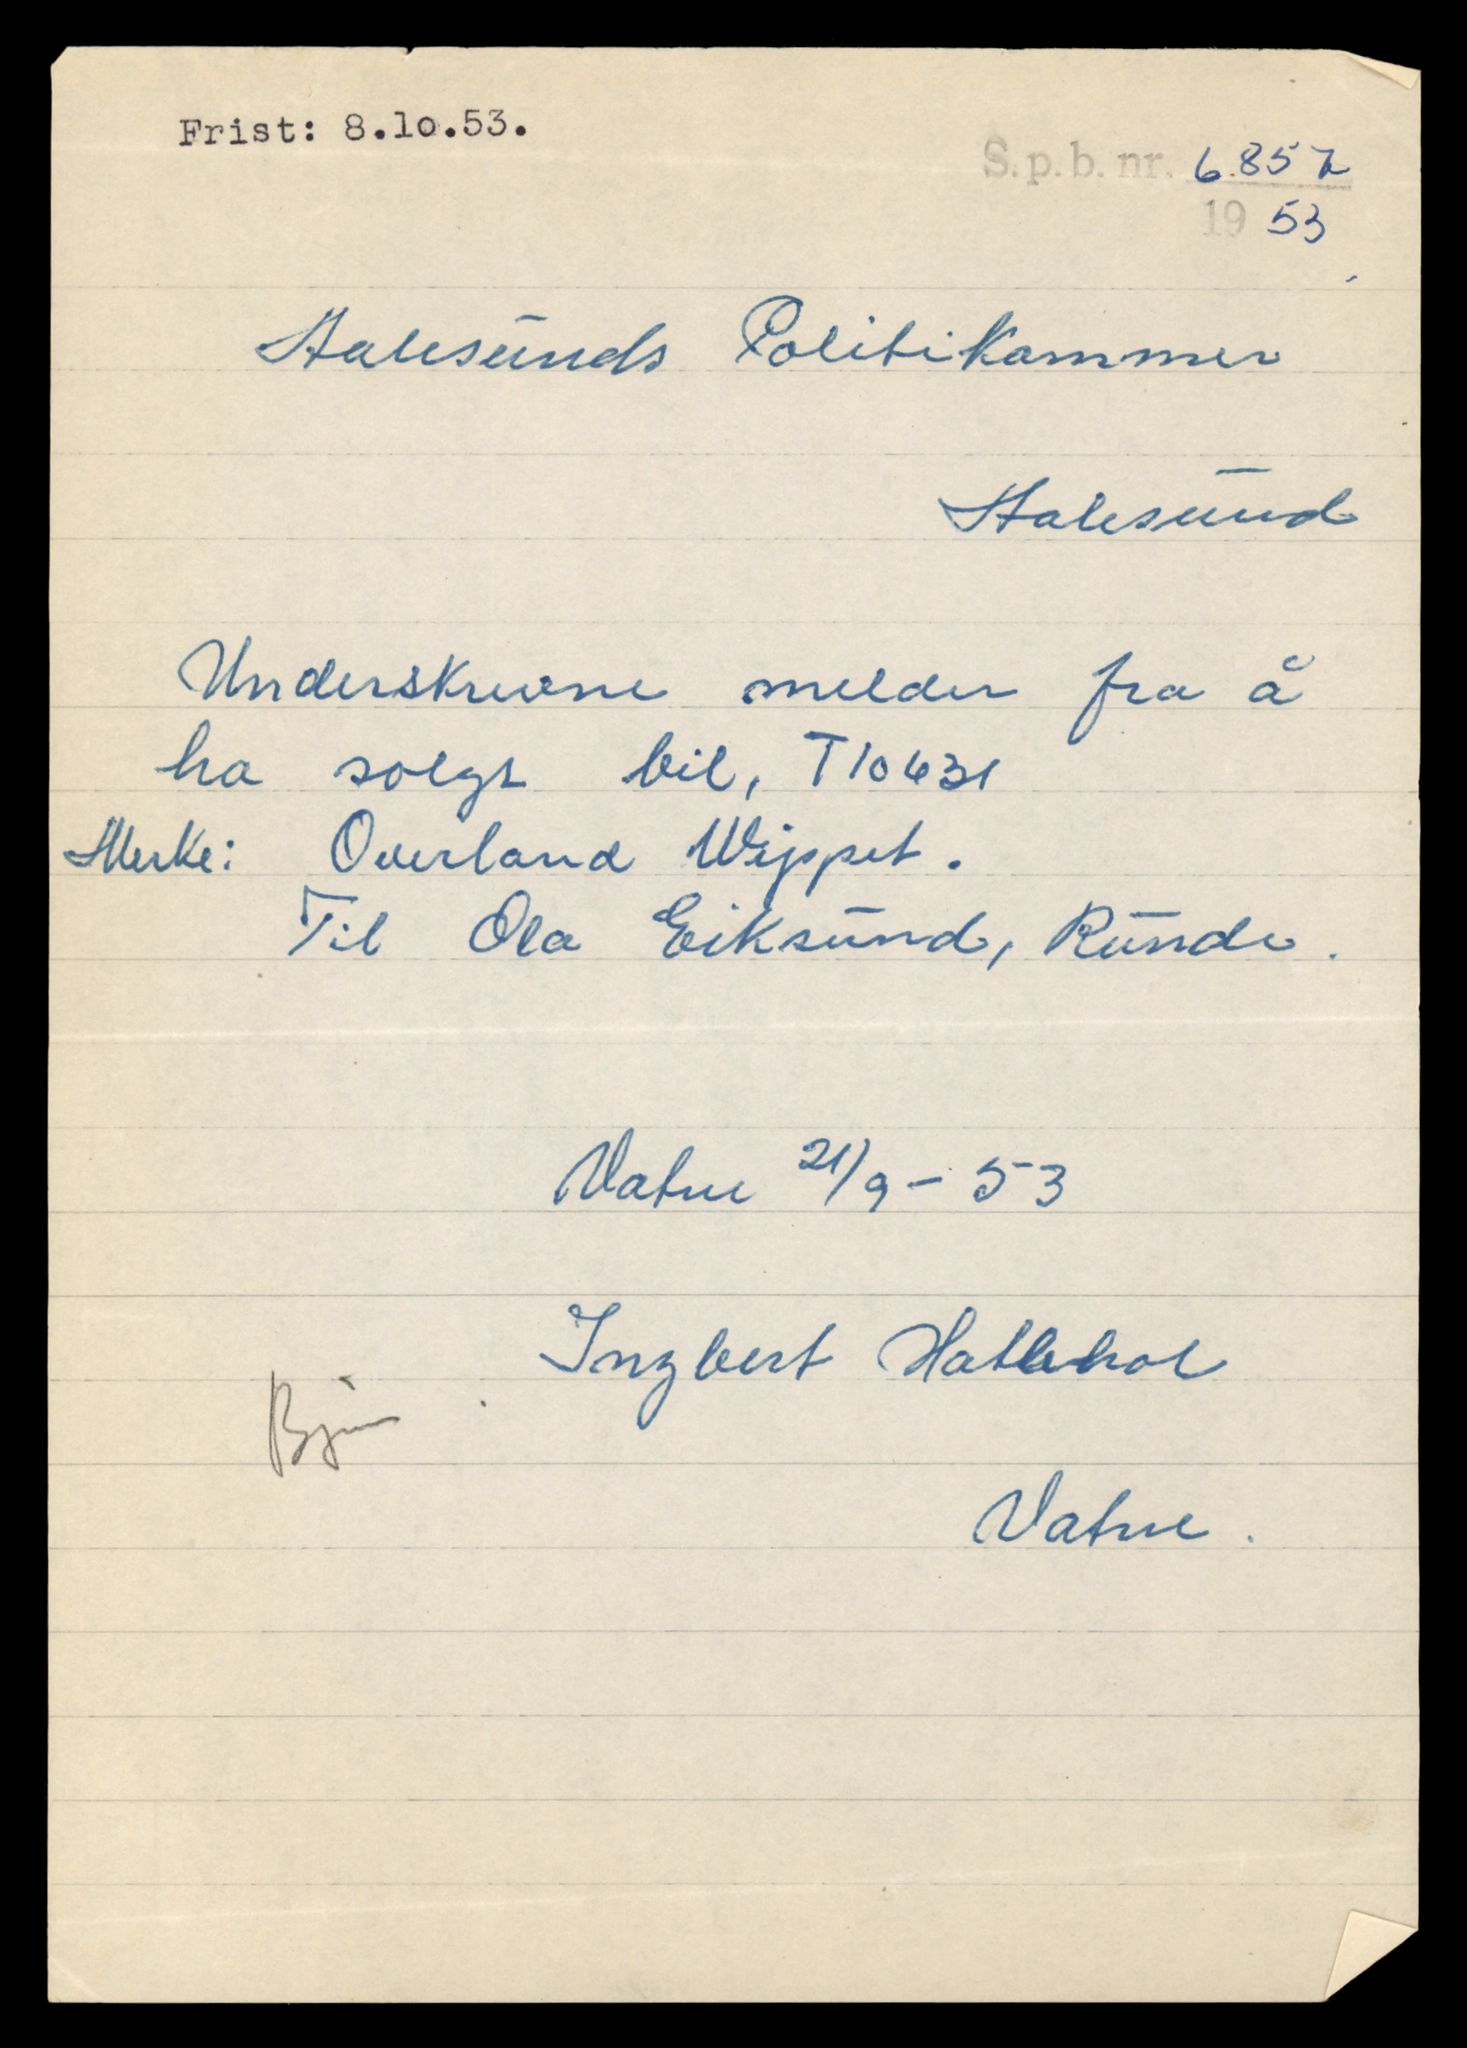 Frist: 8.10.53.
S.p.b. nr. 6.857
1953
Aalesunds Politikammer
Aalesund
Underskrevne melder fra å
ha solgt bil, T10631
Merke: Overland Wippet.
Til Ola Eiksund, Runde.
Vatne 21/9-53
Ingbert Hatlehol
Vatne.